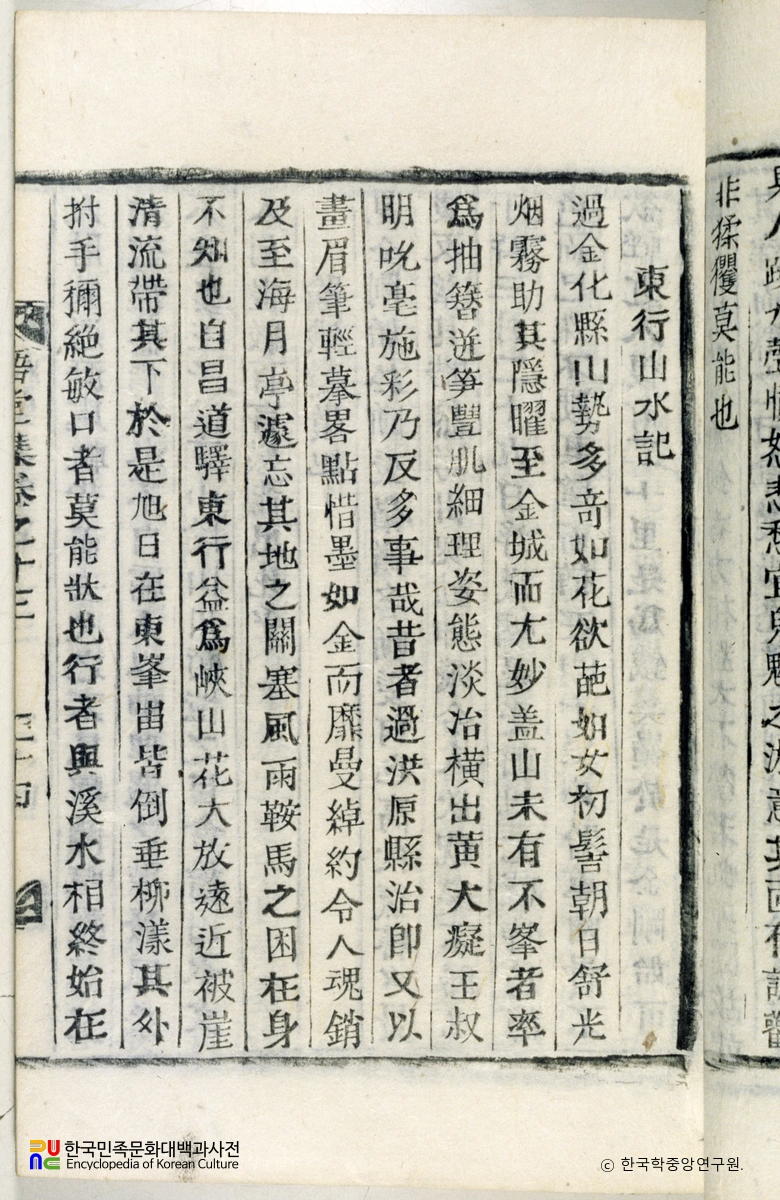 非猱玃莫能也
東行山水記
過金化縣山勢多竒如花欲葩如女初髻朝日舒光
烟霧助其隱曜至金城而尤妙盖山未有不峯者率
爲抽簪迸笋豐肌細理姿態淡冶橫出黃大癡王叔
明吮毫施彩乃反多事哉昔者過洪原縣治卽又以
畫眉筆輕摹畧點惜墨如金而靡曼綽約令人魂銷
及至海月亭遽忘其地之關塞風雨鞍馬之困在身
不知也自昌道驛東行益爲峽山花大放遠近被崖
淸流帶其下於是旭日在東峯岫皆倒垂柳漾其外
拊手彌絶敏口者莫能狀也行者與溪水相終始在
集卷之十三
한국민족문화대백과사전
Encyclopedia of Korean Culture
ⓒ 한국학중앙연구원.